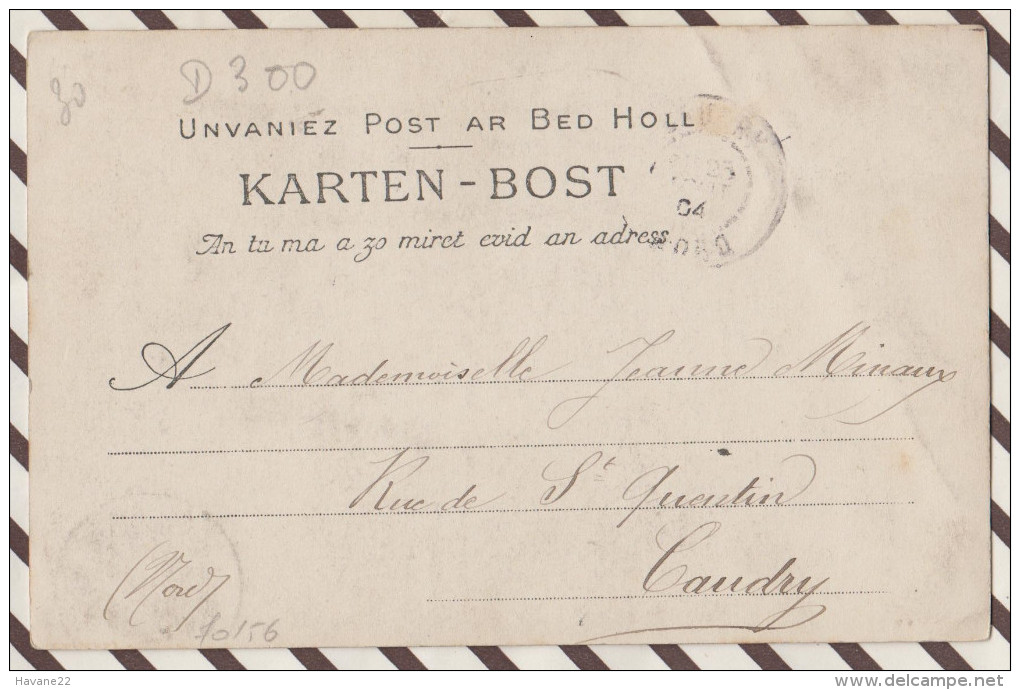 30
D 300
UNVANIEZ POST AR BED HOLL
KARTEN-BOST
An tu ma a zo miret evid an adress.
04
NORD
A Mademoiselle Jeanne Minaux
Rue de St Quentin
Caudry
(Nord)
10156
Havane22
delcampe.net